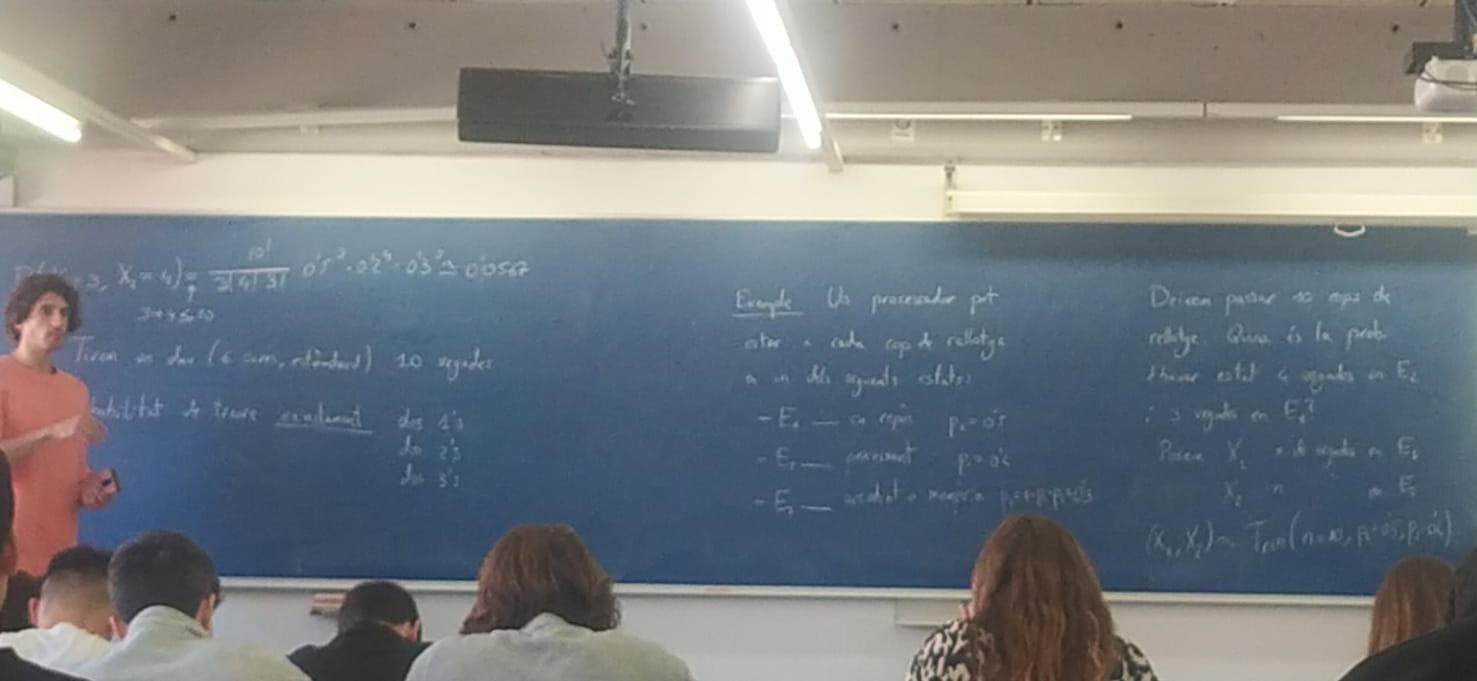 3, X₂=4) = 10! / 3! 4! 3! 0'5³ · 0'2⁴ · 0'3³ ≃ 0'0567
3+4≤10
Tirem un dau (6 cares, estàndard) 10 vegades
de treure exactament dos 1's
dos 2's
dos 3's
Exemple Un processador pot
estar a cada cop de rellotge
en un dels següents estats:
- E₁ — en repòs p₁=0'5
- E₂ — processant p₂=0'2
- E₃ — memòria
Deixem passar 10 cops de
rellotge. Quina és la prob.
d'haver estat 4 vegades en E₂
i 3 vegades en E₁?
Posem X₁ n. de vegades en E₁
X₂ " en E₂
(X₁, X₂) ~ Trin(n=10, p₁=0'5, p₂=0'2)